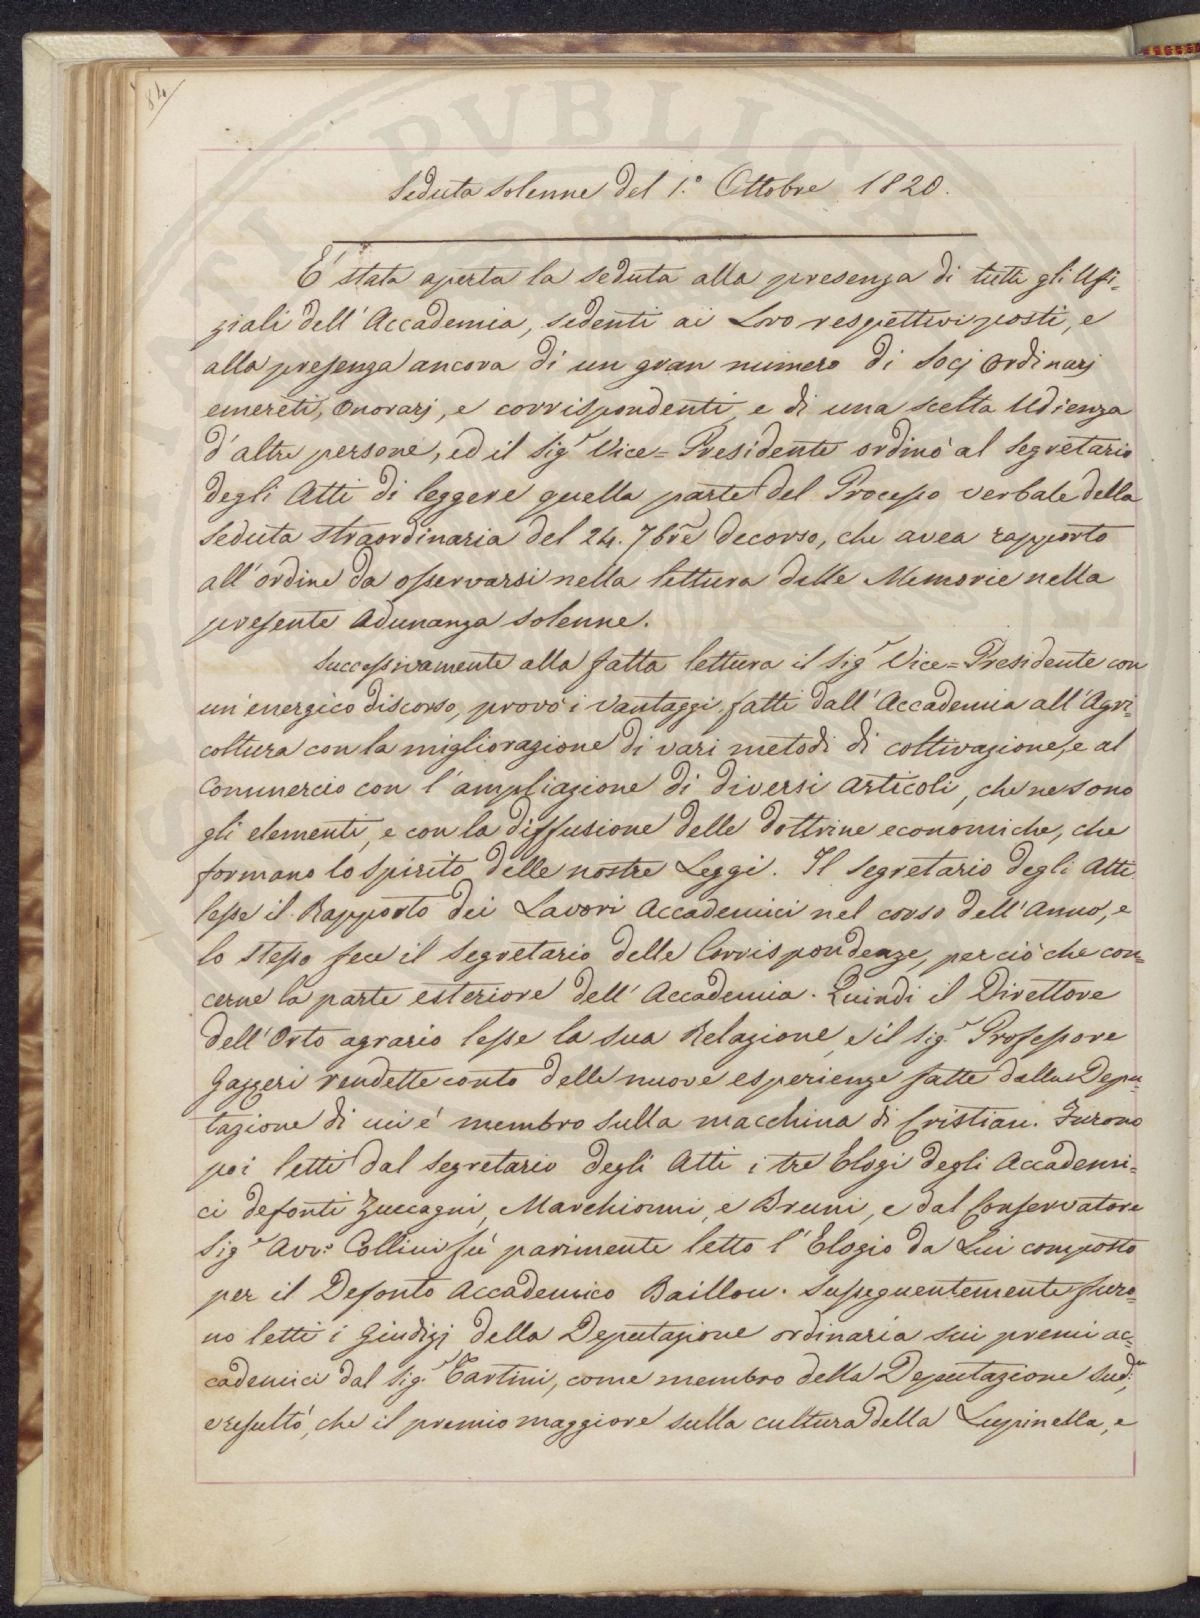 80
Seduta Solenne del 1.° Ottobre 1820.
E' stata aperta la seduta alla presenza di tutti gli Ufi-
ziali dell'Accademia, sedenti ai Loro respettivi posti, e
alla presenza ancora di un gran numero di Socj Ordinarj
emereti, Onorarj, e corrispondenti, e di una scelta Udienza
d'altre persone, ed il Sig.r Vice=Presidente ordinò al Segretario
degli Atti di leggere quella parte del Processo verbale della
Seduta straordinaria del 24. 7bre decorso, che avea rapporto
all'ordine da osservarsi nella lettura delle Memorie nella
presente Adunanza solenne.
Successivamente alla fatta lettura il Sig.r Vice=Presidente con
un'energico discorso, provò i Vantaggi fatti dall'Accademia all'Agri-
coltura con la migliorazione di vari metodi di coltivazione, e al
Commercio con l'ampliazione di diversi articoli, che ne sono
gli elementi, e con la diffusione delle dottrine economiche, che
formano lo Spirito delle nostre Leggi. Il Segretario degli Atti
lesse il Rapporto dei Lavori Accademici nel corso dell'Anno, e
lo stesso fece il Segretario delle Corrispondenze, per ciò che con=
cerne la parte esteriore dell'Accademia. Quindi il Direttore
dell'Orto agrario lesse la sua Relazione, e il Sig.r Professore
Gazzeri rendette conto delle nuove esperienze fatte dalla Depu-
tazione di cui è membro sulla macchina di Cristian. Furono
poi letti dal Segretario degli Atti i tre Elogi degli Accademi=
ci defonti Zuccagni, Marchionni, e Bruni, e dal Conservatore
Sig.r Avv.o Collini fù parimente letto l'Elogio da Lui composto
per il Defonto Accademico Baillou. Susseguentemente furo=
no letti i Giudizj della Deputazione ordinaria sui premi ac=
cademici dal Sig.r Tartini, come membro della Deputazione Sud.a,
e resultò, che il premio maggiore sulla cultura della Lupinella, e